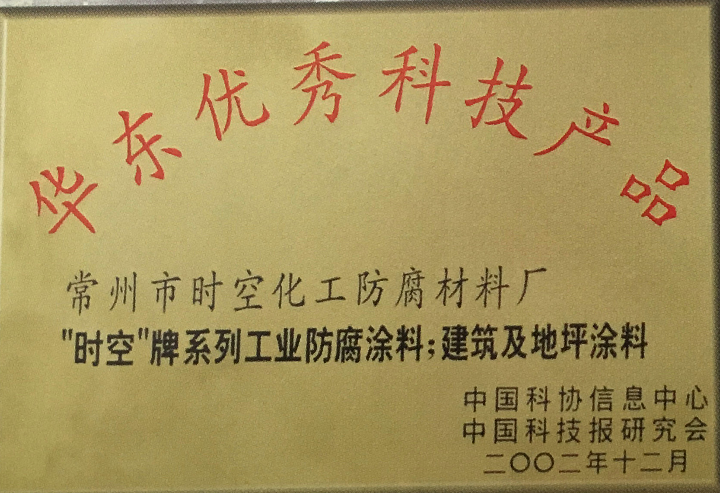 华东优秀科技产品
常州市时空化工防腐材料厂
"时空"牌系列工业防腐涂料;建筑及地坪涂料
中国科协信息中心
中国科技报研究会
二〇〇二年十二月